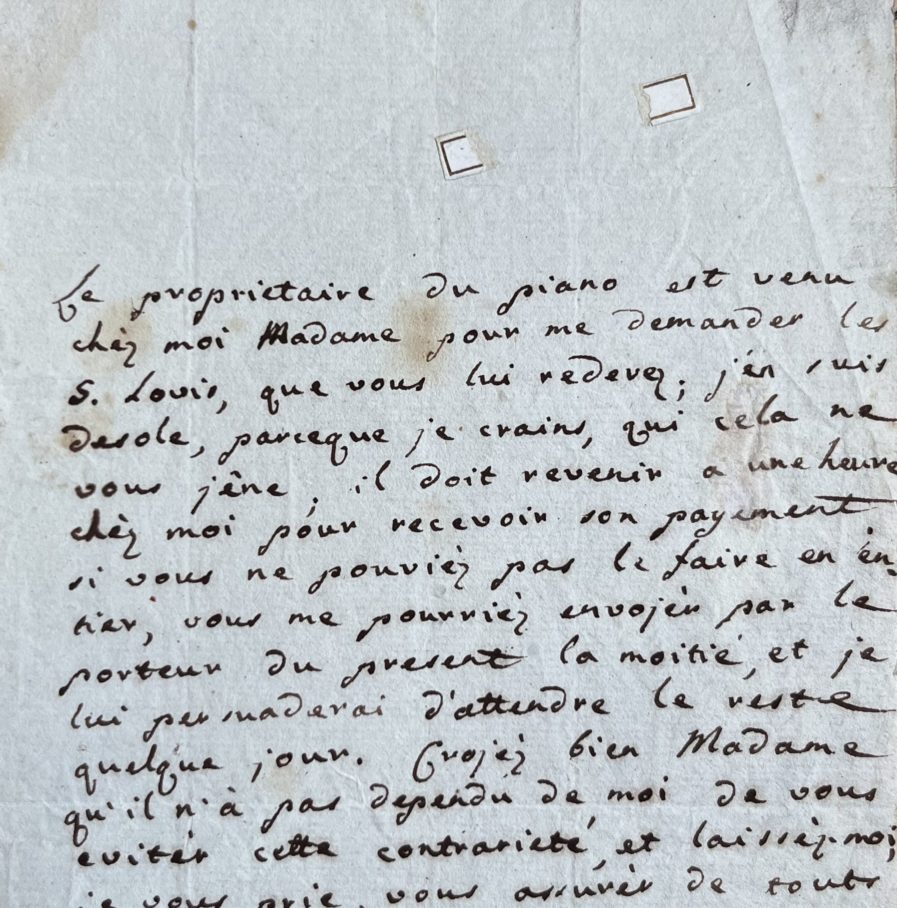 Le proprietaire du piano est venu
chèz moi Madame pour me demander les
5. Louis, que vous lui redevez; j'en suis
desolé, parceque je crains, qui cela ne
vous jêne; il doit revenir a une heure
chèz moi pour recevoir son payement
si vous ne pouvièz pas le faire en en-
tier, vous me pourrièz envojèr par le
porteur du present la moitié, et je
lui persuaderai d'attendre le reste
quelque jour. Crojèz bien Madame
qu'il n'à pas dependu de moi de vous
evitér cette contrarieté, et laissèz-moi,
je vous prie, vous assurèr de touts